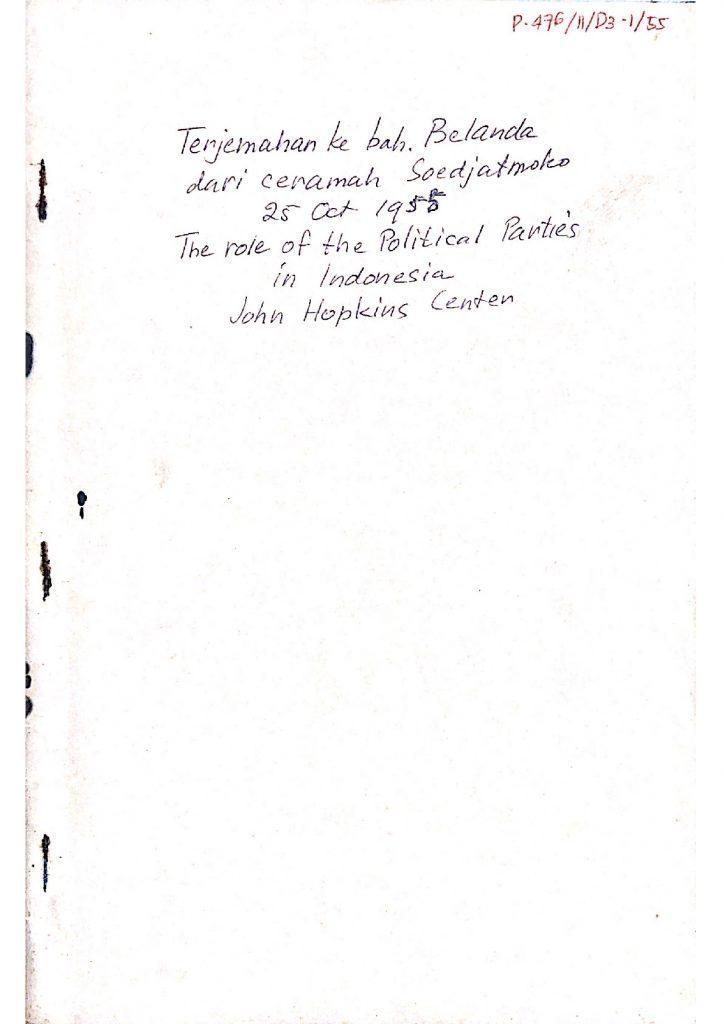 P.476/II/D3-1/55
Terjemahan ke bah. Belanda
dari ceramah Soedjatmoko
25 Oct 1955
The role of the Political Parties
in Indonesia
John Hopkins Center